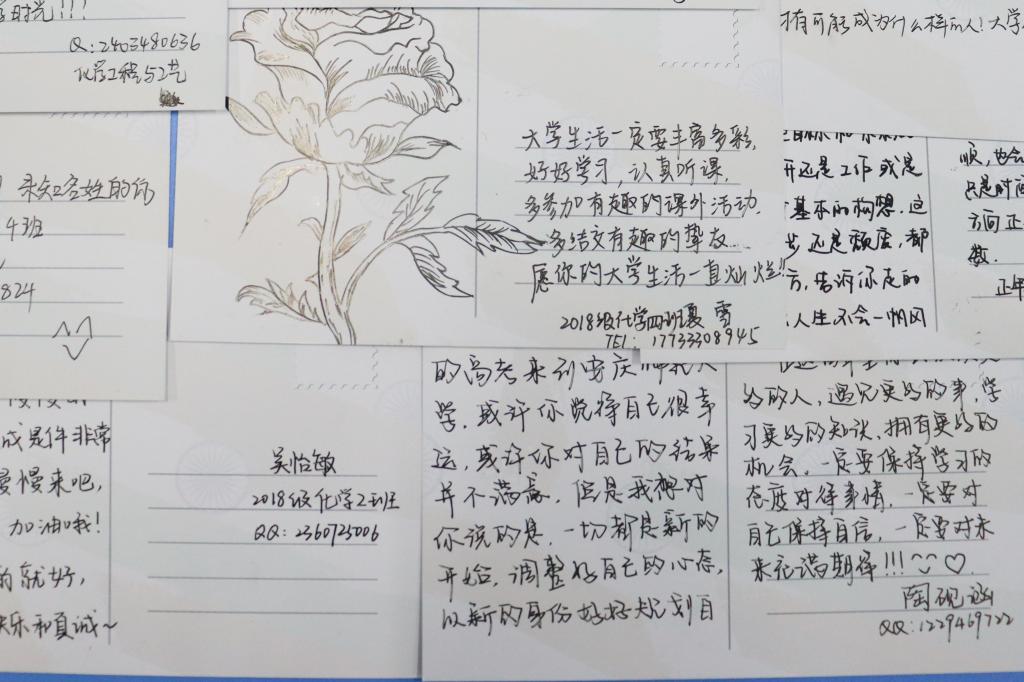 时光!!!
Q:2403480636
4班
824
大学生活一定要丰富多彩,
好好学习,认真听课,
多参加有趣的课外活动,
多结交有趣的挚友...
愿你的大学生活一直灿烂!!
2018级化学四班夏雪
TEL: 17733308945
有可能成为什么样的人!大学
开还是工作或是
基本的构想.这
还是颓废,都
方,告诉你走的
人生不会一帆风
顺,也会
只是时间
方向正
数.
成是件非常
慢慢来吧,
加油哦!
的就好,
快乐和真诚~
吴怡敏
2018级化学2班
QQ:2360725006
的高考来到安庆师范大
学,或许你觉得自己很幸
运,或许你对自己的结果
并不满意,但是我想对
你说的是,一切都是新的
开始,调整好自己的心态,
以新的身份好好规划自
好的人,遇见更好的事,学
习更好的知识,拥有更好的
机会,一定要保持学习的
态度对待事情,一定要对
自己保持自信,一定要对未
来充满期待!!!
陶砚涵
QQ:1229469722